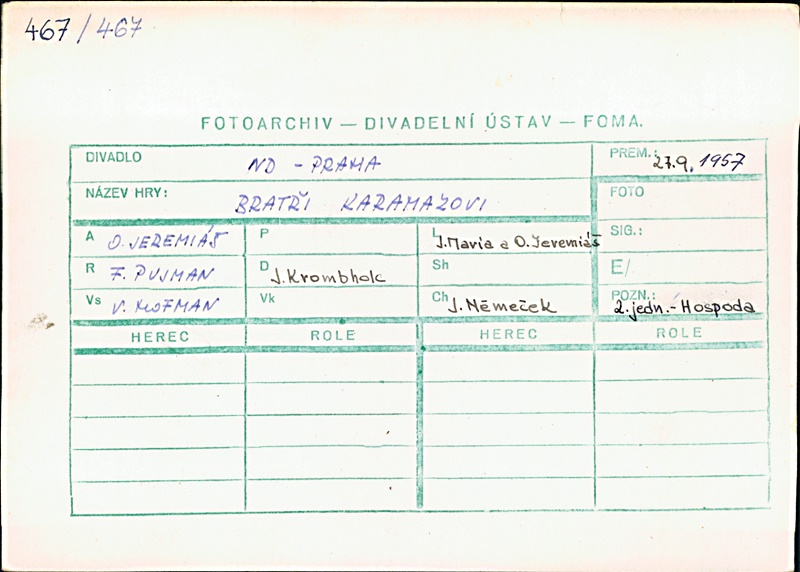 467/467
FOTOARCHIV — DIVADELNÍ ÚSTAV — FOMA.
DIVADLO ND - PRAHA PREM.: 27.9.1957
NÁZEV HRY: BRATŘI KARAMAZOVI FOTO
A O. JEREMIÁŠ P L J.Maria a O.Jeremiáš SIG.:
R F. PUJMAN D J.Krombholc Sh E/
Vs V. HOFMAN Vk Ch J.Němeček POZN.: 2.jedn.-Hospoda
HEREC ROLE HEREC ROLE